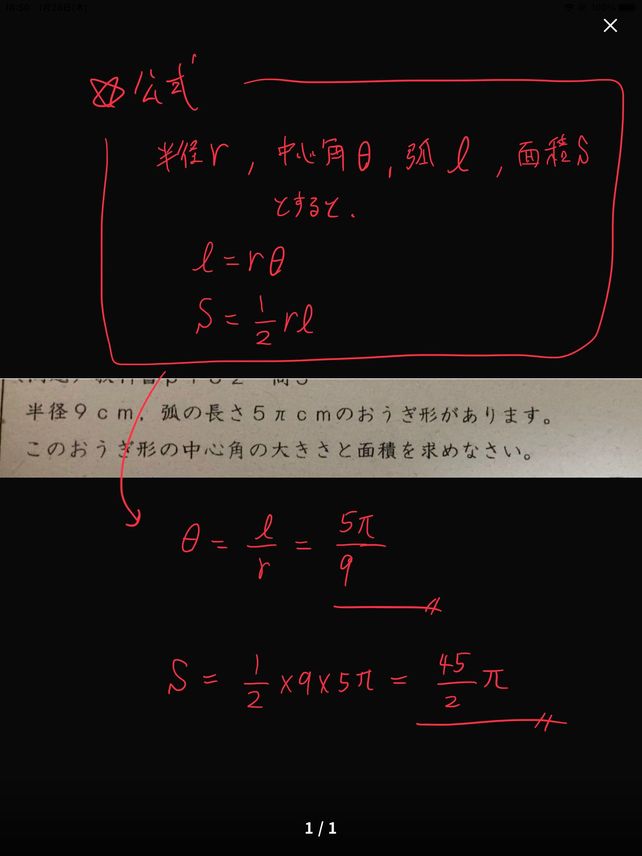 18:50 1月28日(木) 100%
☆公式
半径r, 中心角θ, 弧l, 面積S
とすると.
l=rθ
S=1/2 rl
半径9cm,弧の長さ5πcmのおうぎ形があります。
このおうぎ形の中心角の大きさと面積を求めなさい。
θ = l/r = 5π/9
S = 1/2 ×9×5π = 45/2 π
1 / 1